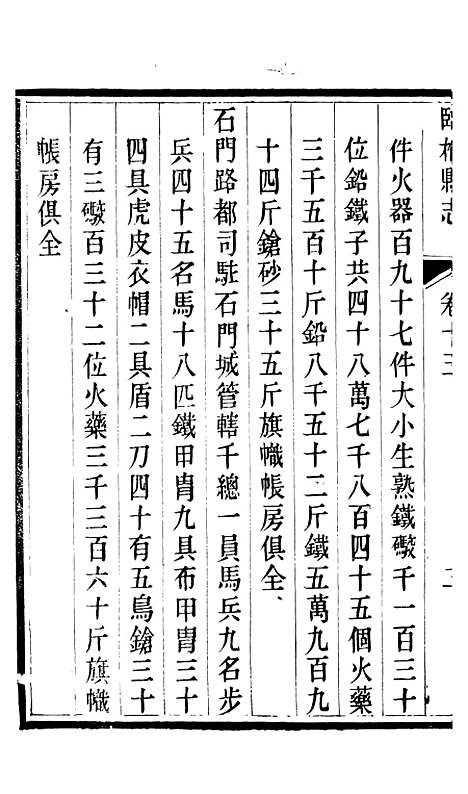 臨榆縣志 卷十三
件火器百九十七件大小生熟鐵礮千一百三十
位鉛鐵子共四十八萬七千八百四十五個火藥
三千五百十斤鉛八千五十二斤鐵五萬九百九
十四斤鎗砂三十五斤旗幟帳房俱全
石門路都司駐石門城管轄千總一員馬兵九名步
兵四十五名馬十八匹鐵甲冑九具布甲冑三十
四具虎皮衣帽二具盾二刀四十有五鳥鎗三十
有三礮百三十二位火藥三千三百六十斤旗幟
帳房俱全